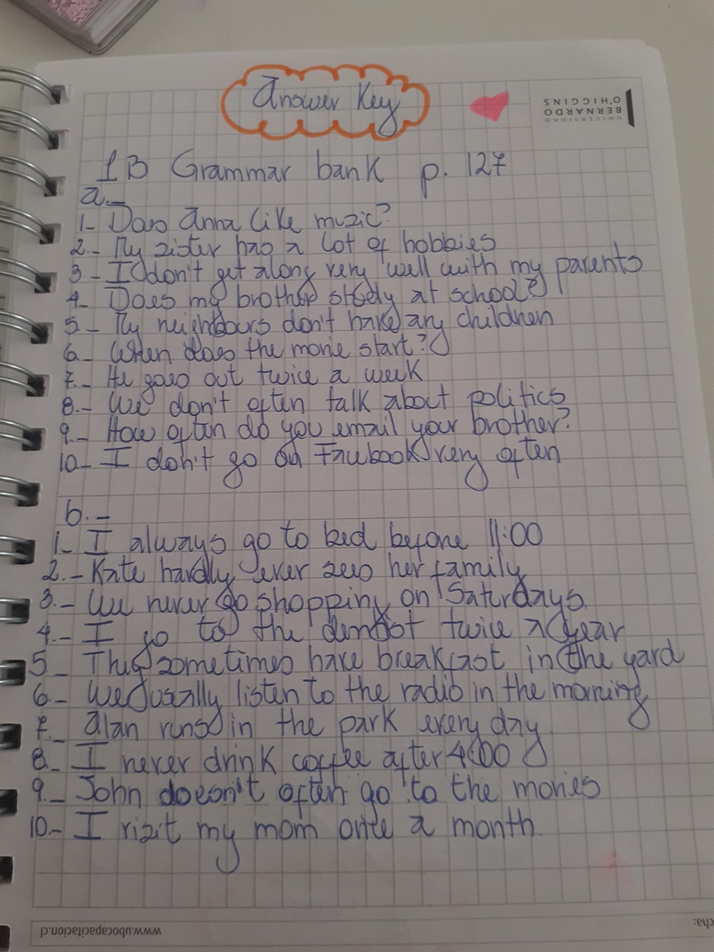 Answer Key
UNIVERSIDAD
BERNARDO
O'HIGGINS
1B Grammar bank p. 127
a.-
1- Does Anna like music?
2.- My sister has a lot of hobbies
3- I don't get along very well with my parents
4- Does my brother study at school?
5- My neighbours don't have any children
6- When does the movie start?
7- He goes out twice a week
8.- We don't often talk about politics
9- How often do you email your brother?
10- I don't go on Facebook very often
b.-
1- I always go to bed before 11:00
2.- Kate hardly ever sees her family
3.- We never go shopping on Saturdays
4.- I go to the dentist twice a year
5- They sometimes have breakfast in the yard
6- We usually listen to the radio in the morning
7- Alan runs in the park every day
8- I never drink coffee after 4:00
9- John doesn't often go to the movies
10.- I visit my mom once a month
www.ubocapacitacion.cl
cha: